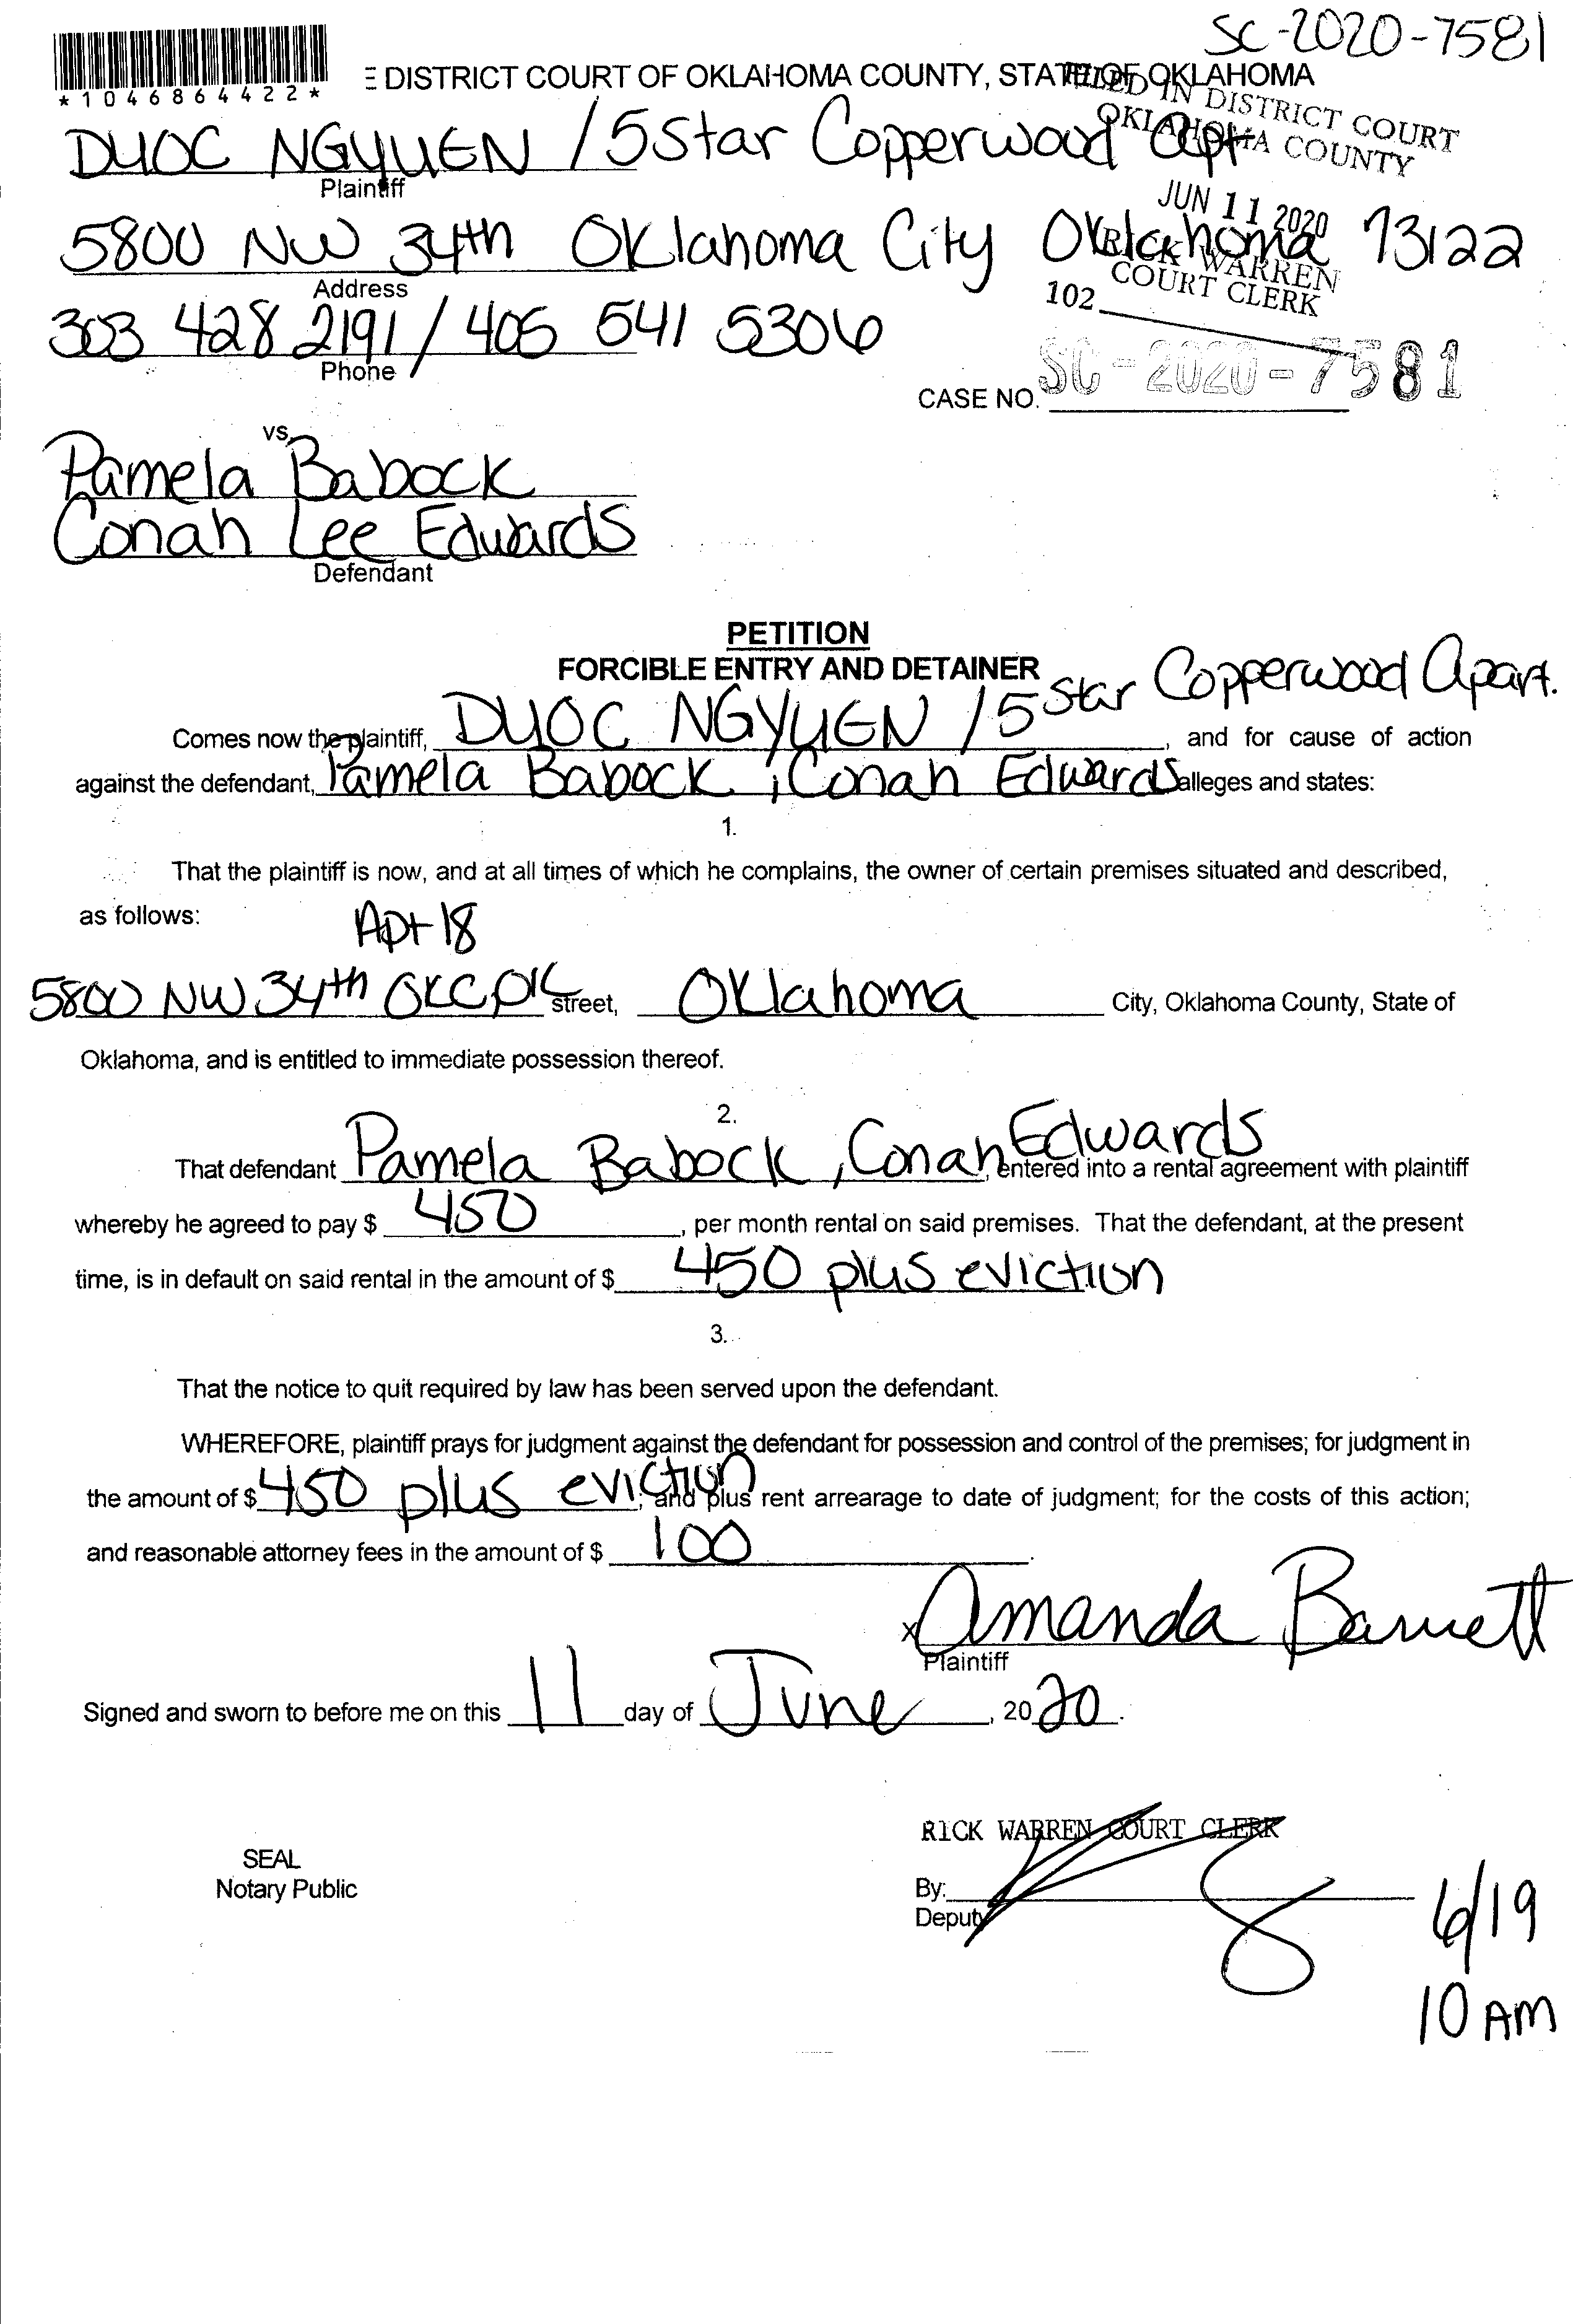 SC-2020-7581
*1046864422*
E DISTRICT COURT OF OKLAHOMA COUNTY, STATE OF OKLAHOMA
FILED IN DISTRICT COURT
OKLAHOMA COUNTY
DUOC NGYUEN / 5 Star Copperwood Apt
Plaintiff
JUN 11 2020
5800 NW 34th Oklahoma City Oklahoma 73122
Address
RICK WARREN
COURT CLERK
102
303 428 2191 / 405 541 5306
Phone
CASE NO. SC-2020-7581
vs.
Pamela Babock
Conah Lee Edwards
Defendant
PETITION
FORCIBLE ENTRY AND DETAINER
Comes now the plaintiff, DUOC NGYUEN / 5 Star Copperwood Apart. , and for cause of action
against the defendant, Pamela Babock , Conah Edwards alleges and states:
1.
That the plaintiff is now, and at all times of which he complains, the owner of certain premises situated and described,
as follows:
Apt 18
5800 NW 34th OKC OK street, Oklahoma City, Oklahoma County, State of
Oklahoma, and is entitled to immediate possession thereof.
2.
That defendant Pamela Babock , Conah Edwards , entered into a rental agreement with plaintiff
whereby he agreed to pay $ 450 , per month rental on said premises. That the defendant, at the present
time, is in default on said rental in the amount of $ 450 plus eviction
3.
That the notice to quit required by law has been served upon the defendant.
WHEREFORE, plaintiff prays for judgment against the defendant for possession and control of the premises; for judgment in
the amount of $ 450 plus eviction ; and plus rent arrearage to date of judgment; for the costs of this action;
and reasonable attorney fees in the amount of $ 100 .
x Amanda Barnett
Plaintiff
Signed and sworn to before me on this 11 day of June , 2020 .
RICK WARREN COURT CLERK
SEAL
Notary Public
By:
Deputy
6/19
10 AM